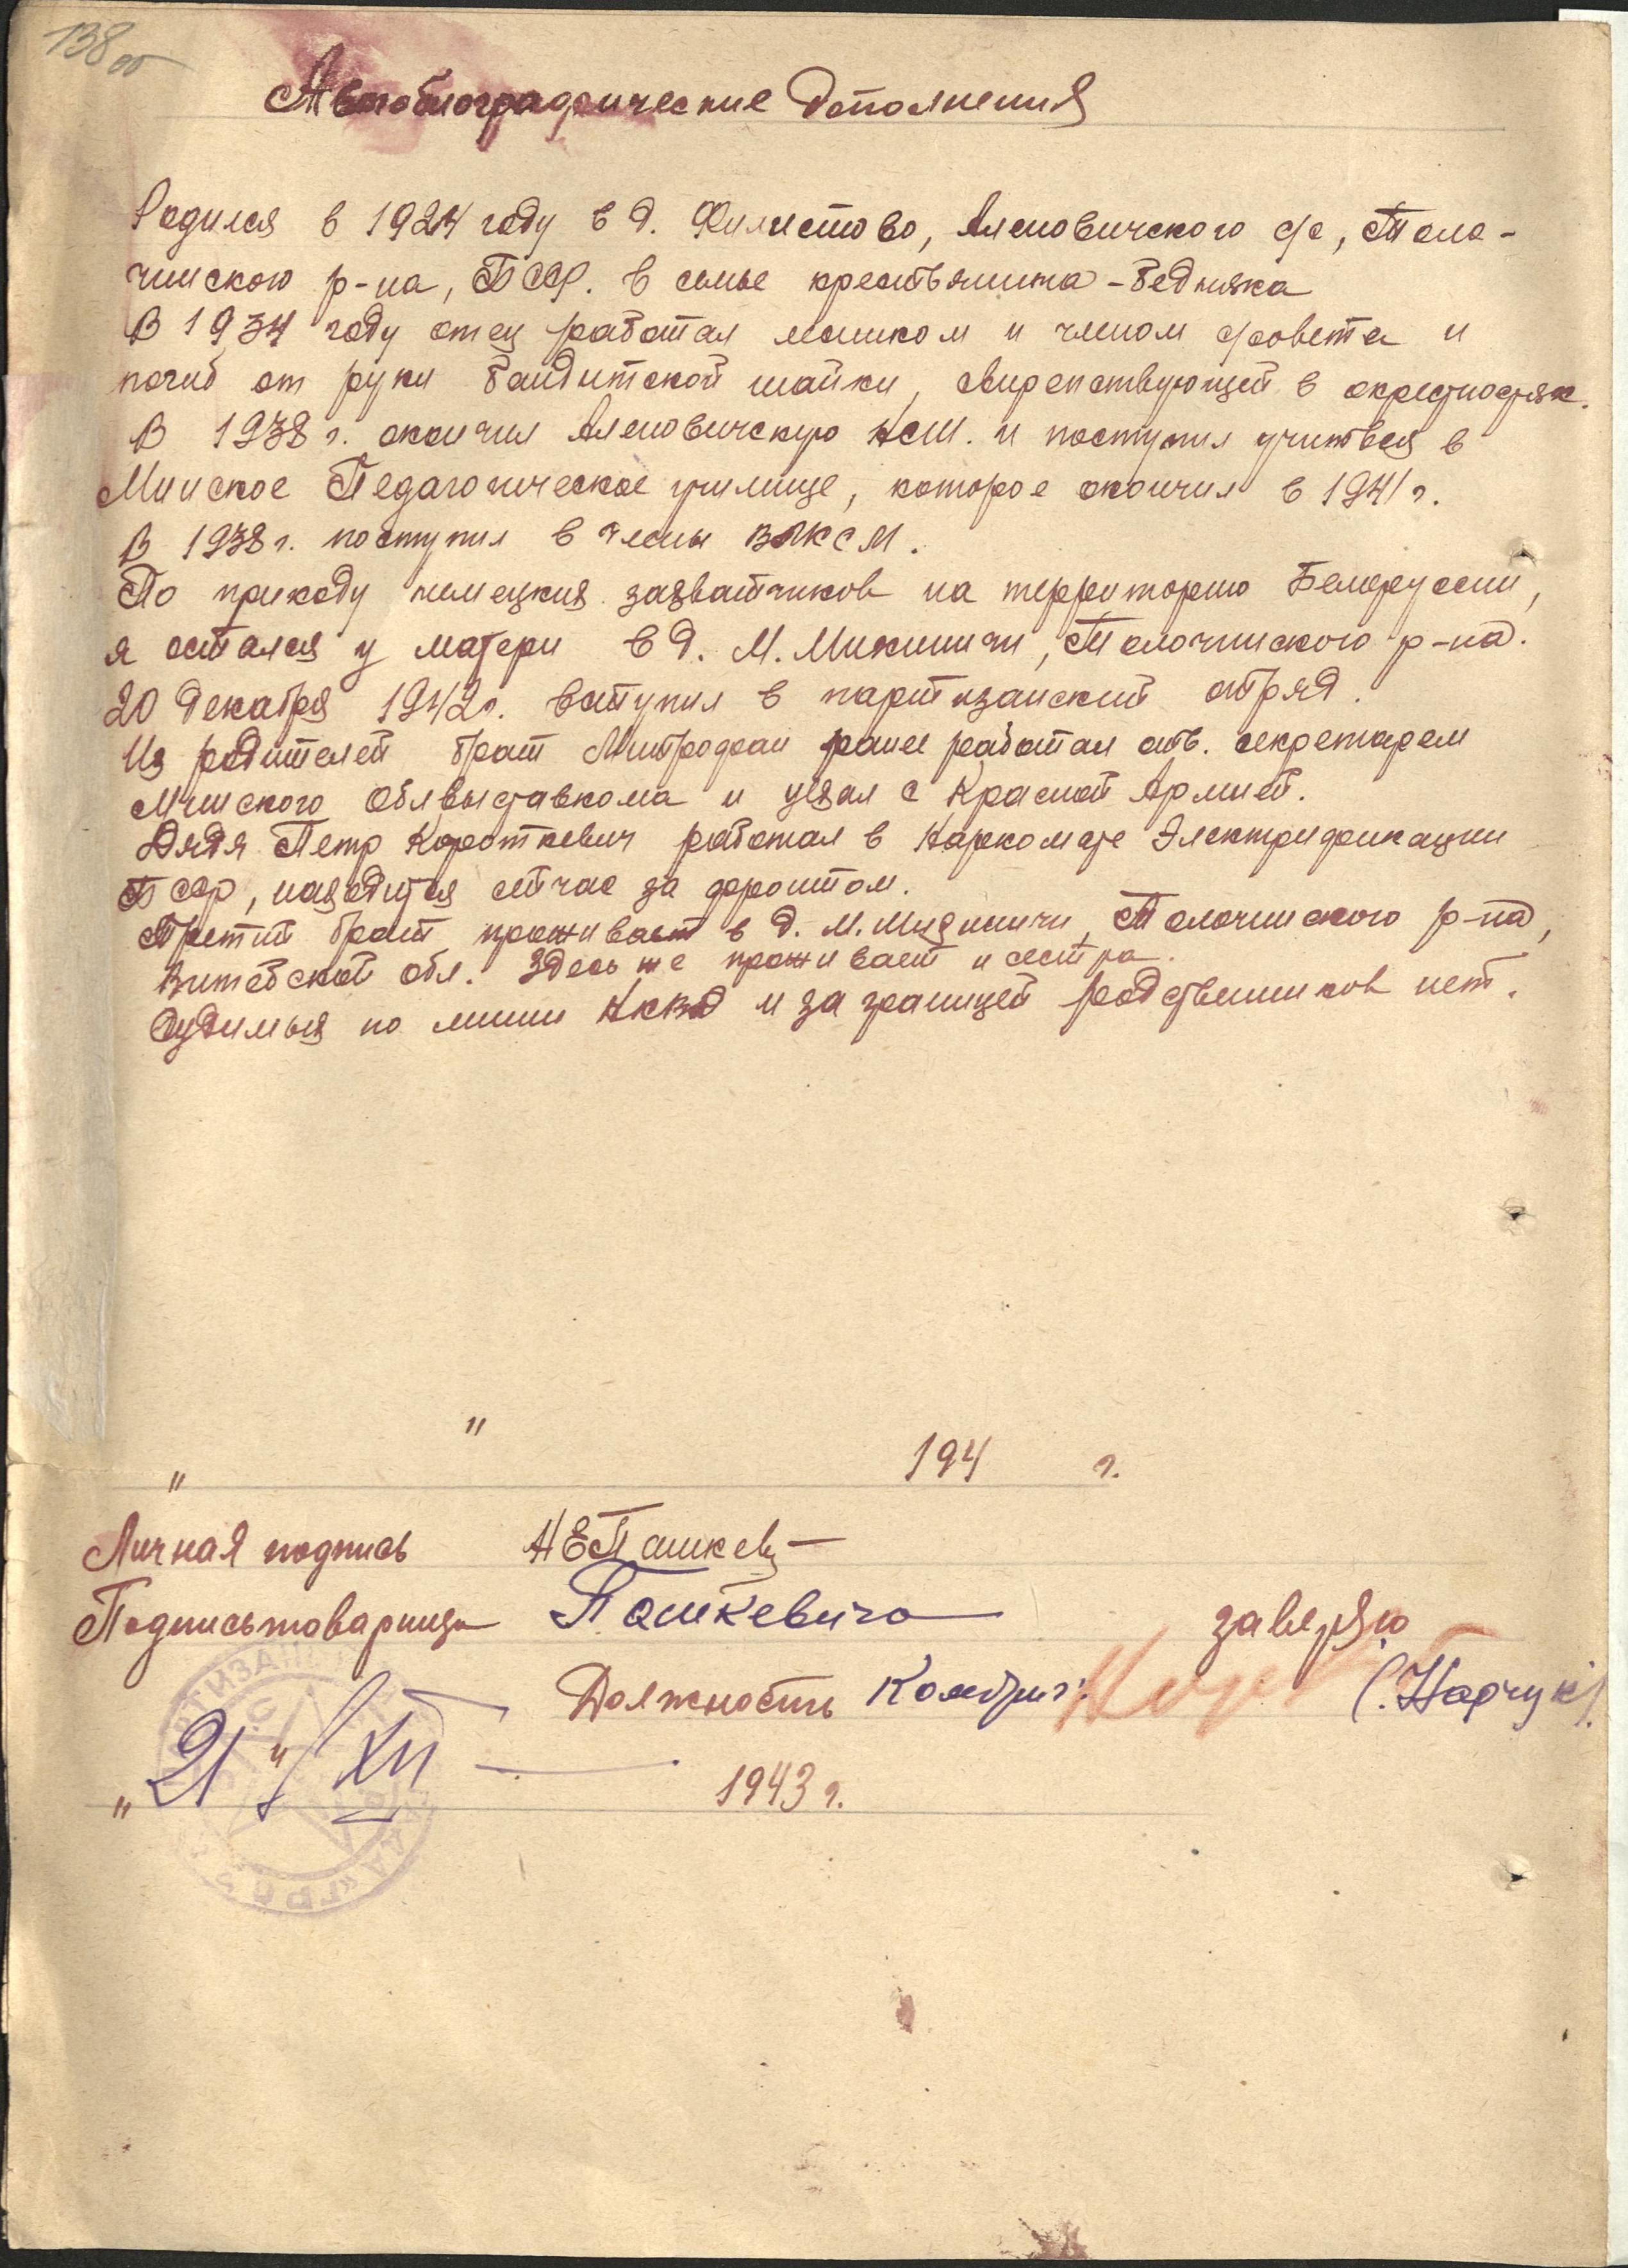 138 об
Автобиографические дополнения
Родился в 1924 году в д. Филистово, Аленовичского с/с, Толо-
чинского р-на, БССР. в семье крестьянина-бедняка
В 1934 году отец работал мельником и членом с/совета и
погиб от руки бандитской шайки, свирепствующей в окрестностях.
В 1938 г. окончил Аленовичскую НСШ. и поступил учиться в
Минское Педагогическое училище, которое окончил в 1941 г.
В 1938 г. поступил в члены ВЛКСМ.
По приходу немецких захватчиков на территорию Белоруссии,
я остался у матери в д. М. Михиничи, Толочинского р-на.
20 декабря 1942 г. вступил в партизанский отряд.
Из родителей брат Митрофан ранее работал отв. секретарем
Минского Облвыставкома и ушел с Красной Армией.
Дядя Петр Короткевич работал в Наркомате Электрификации
БССР, находится сейчас за фронтом.
Третий брат проживает в д. М. Михиничи, Толочинского р-на,
Витебской обл. Здесь же проживает и сестра.
Судимых по линии НКВД и за границей родственников нет.
" " 194 г.
Личная подпись НЕПашкев
Подпись товарища Пашкевича заверяю
Должность Комбриг (Нарчук).
" 21 " XII 1943 г.